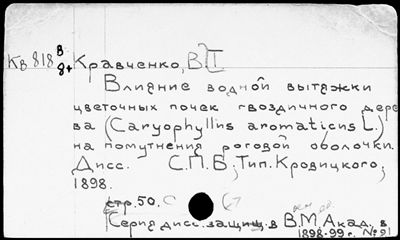 Кв 818 в 8+ Кравченко, В І
Влияние водной вытяжки
цветочных почек гвоздичного дере
ва (Caryophyllus aromaticus L.)
на помутнения роговой оболочки.
Дисс. С.П.Б, Тип. Кровицкого,
1898.
стр. 50.
Серия дисс. защищ. в В.М Акад. в
1898-99 г. №9